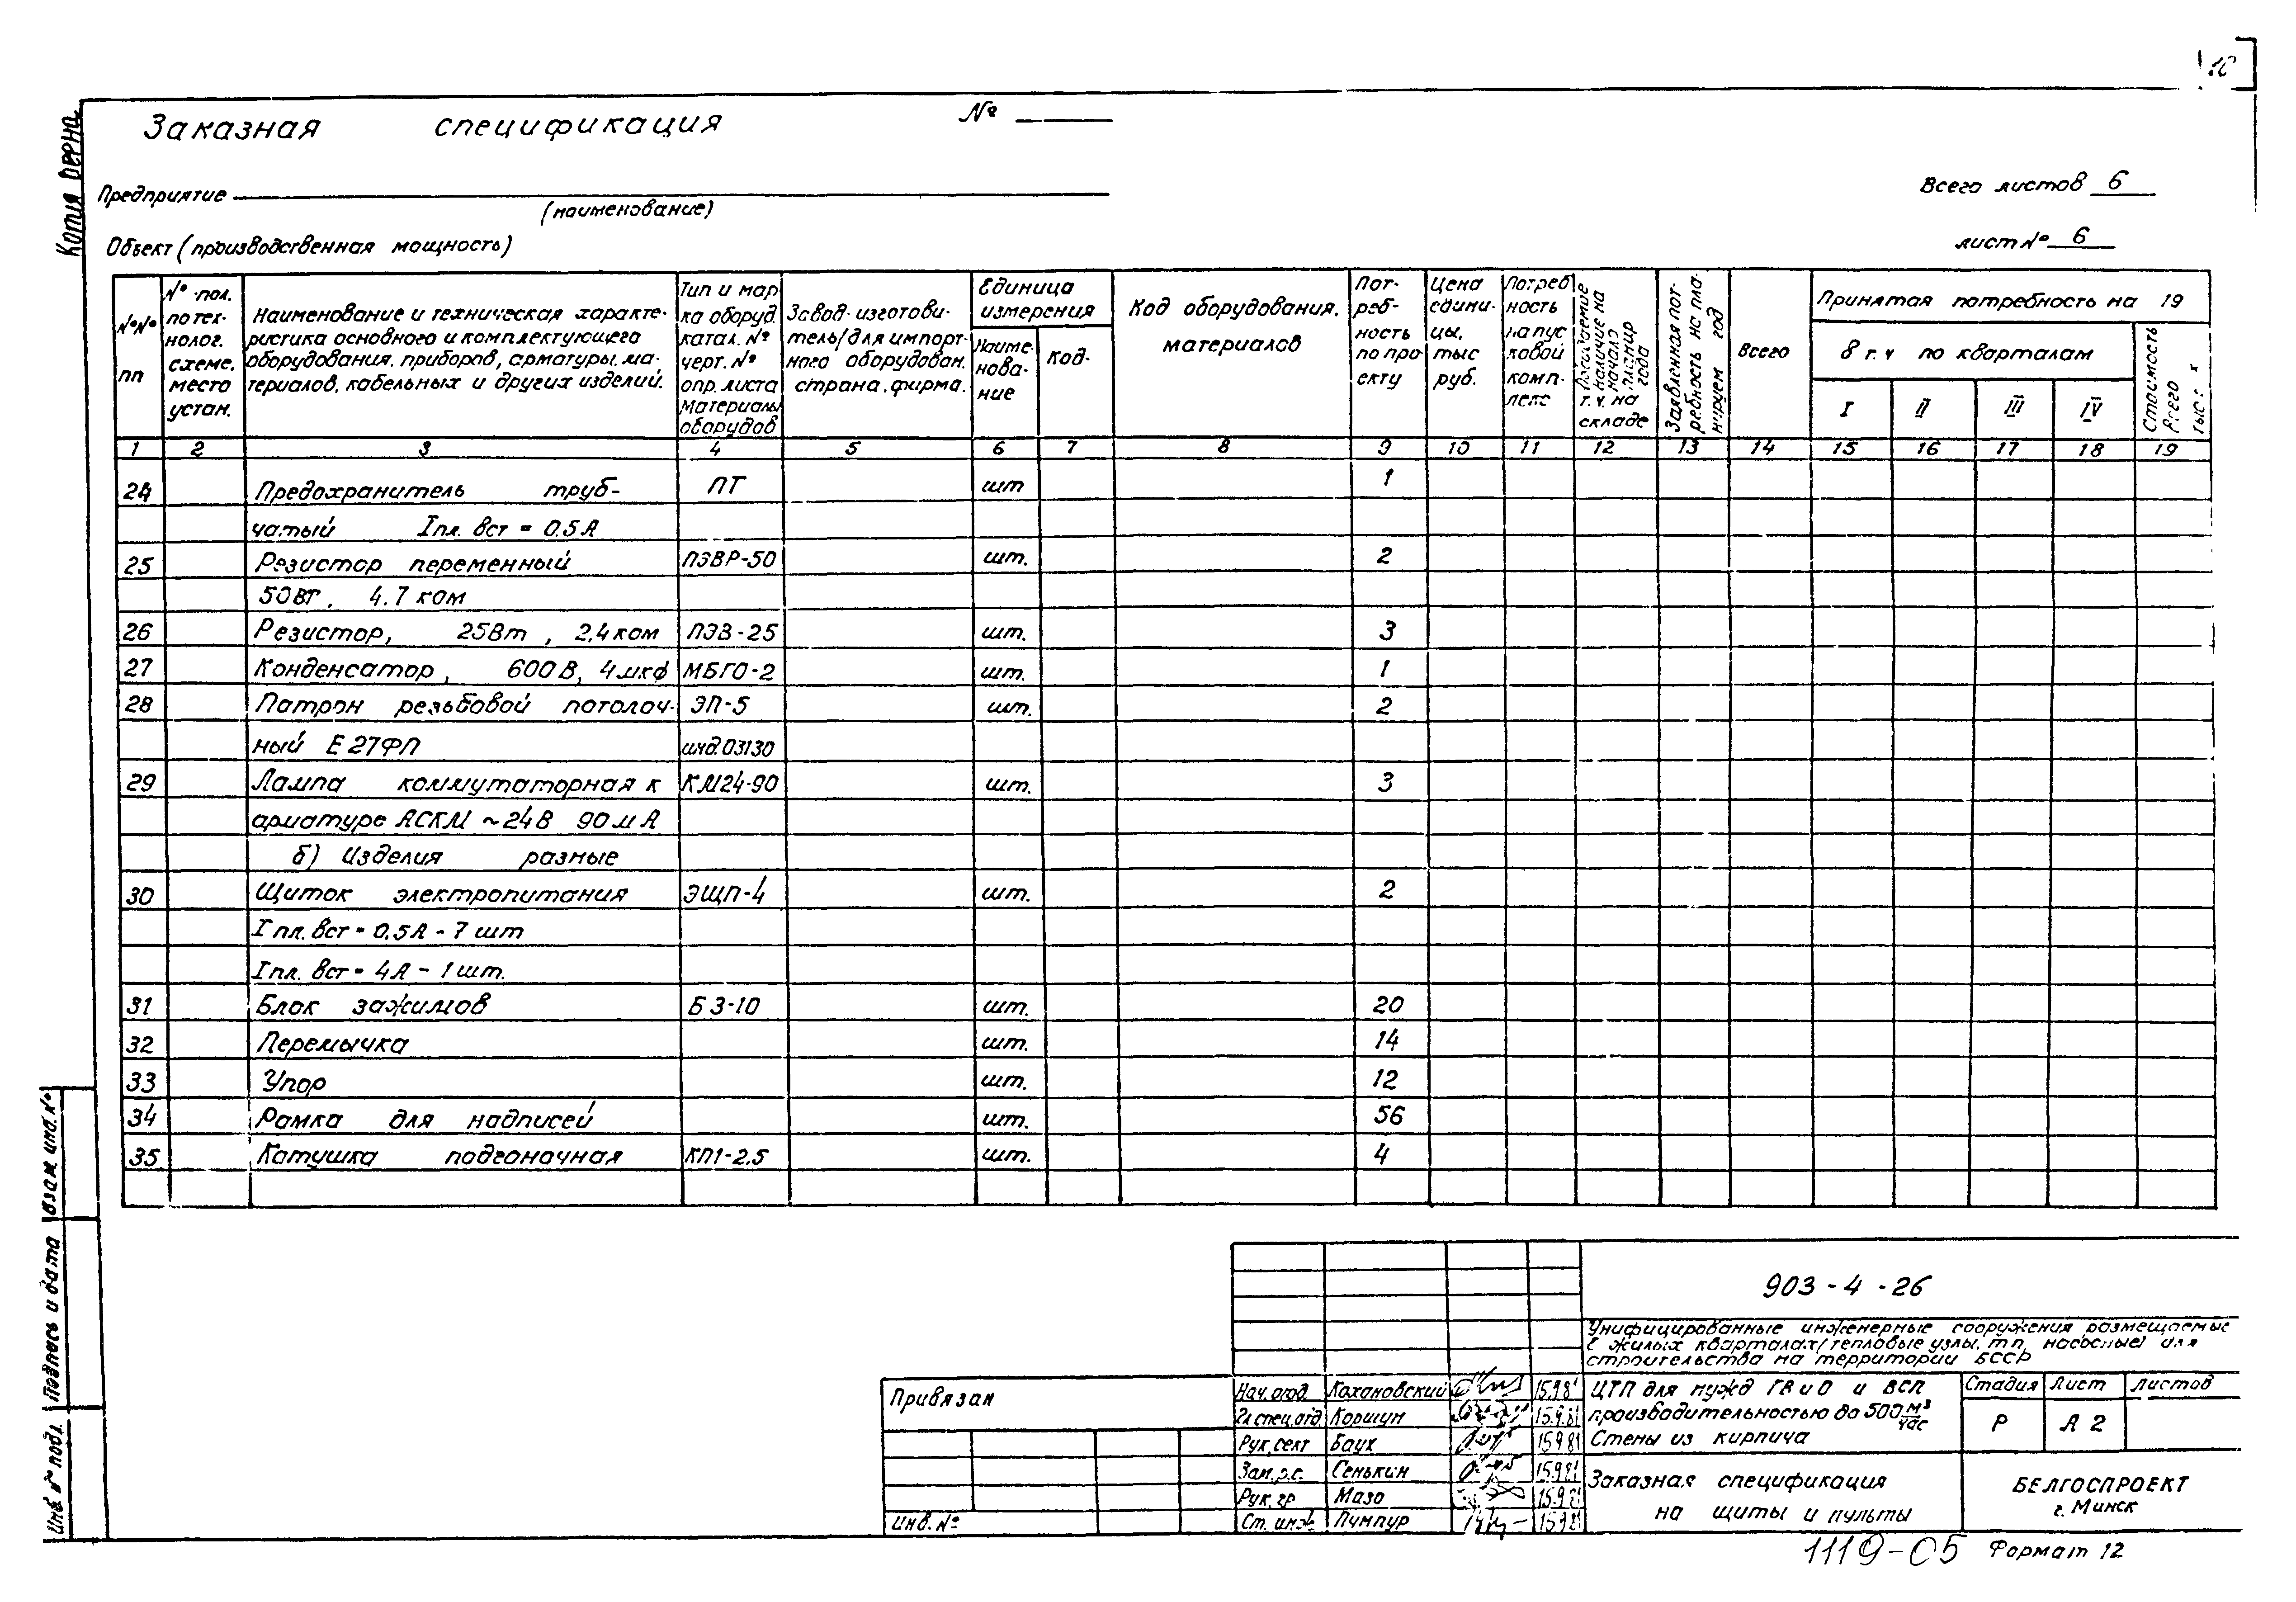 Заказная спецификация №
Копия верна
Предприятие
(наименование)
Всего листов 6
Объект (производственная мощность)
лист № 6
№№ пп
№ поз. по тех- нолог. схеме, место устан.
Наименование и техническая характе-
ристика основного и комплектующего
оборудования, приборов, арматуры, ма-
териалов, кабельных и других изделий.
Тип и мар
ка оборуд
катал. №
черт. №
опр. листа
Материалы
оборудов
Завод-изготови-
тель/для импорт-
ного оборудован.
страна, фирма.
Единица
измерения
Наиме-
нова-
ние
Код.
Код оборудования,
материалов
Пот-
реб-
ность
по про
екту
Цена
едини-
цы,
тыс
руб.
Потреб
ность
на пус
ковой
комп-
лекс
Ожидаемое наличие на начало планир года
т.ч. на
складе
Заявленная пот-
ребность на пла-
нируем год
Всего
Принятая потребность на 19
в т.ч по кварталам
I II III IV
Стоимость
всего
1 2 3 4 5 6 7 8 9 10 11 12 13 14 15 16 17 18 19
24 Предохранитель труб- ПТ шт 1
чатый Iпл. вст = 0.5А
25 Резистор переменный ПЭВР-50 шт. 2
50вт, 4.7 ком
26 Резистор, 25Вт, 2,4 ком ПЭВ-25 шт. 3
27 Конденсатор, 600В, 4мкф МБГО-2 шт. 1
28 Патрон резьбовой потолоч- ЭП-5 шт. 2
ный Е27ФП инд.03130
29 Лампа коммутаторная к КМ24-90 шт. 3
арматуре АСКМ ~24В 90мА
б) Изделия разные
30 Щиток электропитания ЭЩП-4 шт. 2
Iпл. вст = 0,5А - 7 шт
Iпл. вст = 4А - 1 шт.
31 Блок зажимов БЗ-10 шт. 20
32 Перемычка шт. 14
33 Упор шт. 12
34 Рамка для надписей шт. 56
35 Катушка подгоночная КП1-2,5 шт. 4
Взам. инв. №
Подпись и дата
Инв. № подл.
903-4-26
Унифицированные инженерные сооружения размещаемые
в жилых кварталах/тепловые узлы, тп, насосные/ для
строительства на территории БССР
Привязан
Инв. №
Нач. отд. Кахановский 15.9.81
Гл спец. отд. Коршун 15.9.81
Рук. сект Баух 15.9.81
Зам. р.с. Сенькин 15.9.81
Рук. гр Мазо 15.9.81
Ст. инж Пумпур 15.9.81
ЦТП для нужд ГВ и О и ВСП
производительностью до 500 м³/час
Стены из кирпича
Стадия Лист Листов
Р А2
Заказная спецификация
на щиты и пульты
БЕЛГОСПРОЕКТ
г. Минск
1119-05 Формат 12